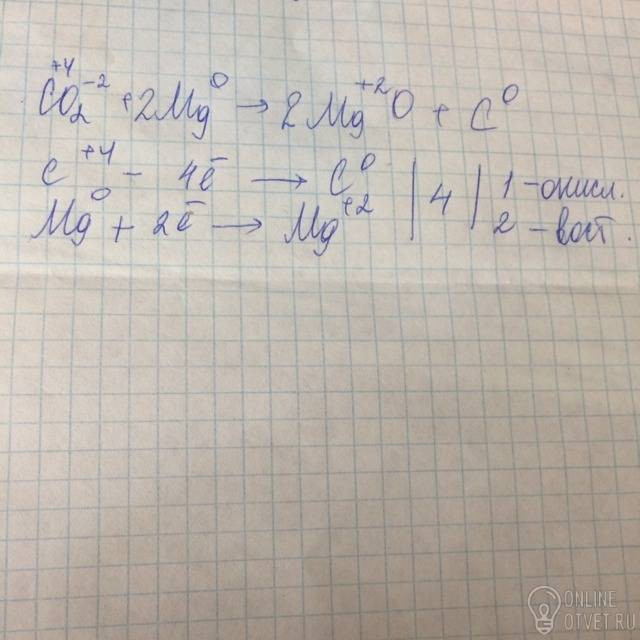 C⁺⁴O₂⁻² + 2Mg⁰ → 2Mg⁺²O + C⁰
C⁺⁴ - 4ē → C⁰ | 4 | 1 - окисл.
Mg⁰ + 2ē → Mg⁺² | | 2 - вост.
ONLINE
OTVET.RU